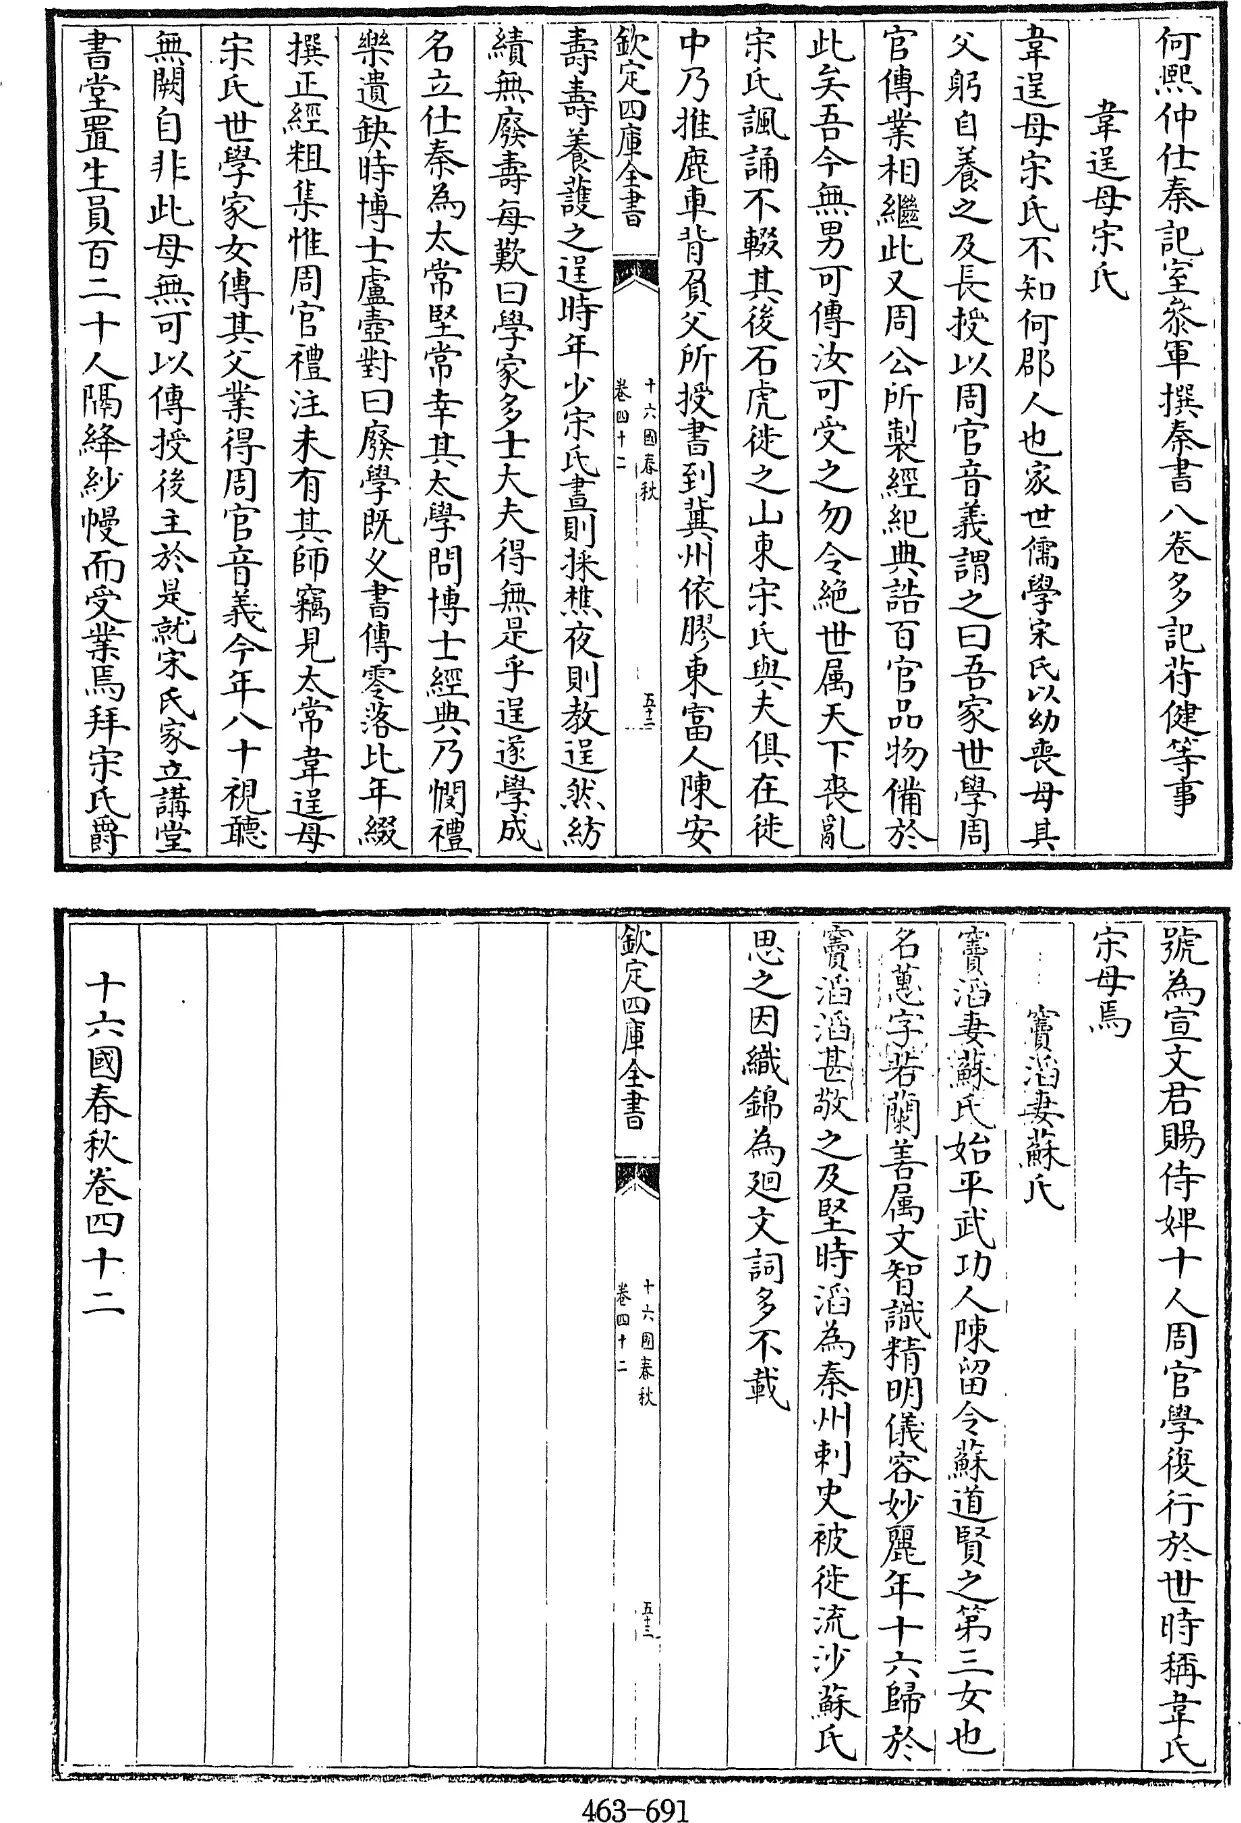 何熙仲仕秦記室叅軍撰秦書八卷多記苻健等事
韋逞母宋氏
韋逞母宋氏不知何郡人也家世儒學宋氏以幼喪母其
父躬自養之及長授以周官音義謂之曰吾家世學周
官傳業相繼此又周公所製經紀典誥百官品物備於
此矣吾今無男可傳汝可受之勿令絶世属天下喪亂
宋氏諷誦不輟其後石虎徙之山東宋氏與夫俱在徙
中乃推鹿車背負父所授書到冀州依膠東富人陳安
欽定四庫全書
十六國春秋
卷四十二
五十二
壽壽養護之逞時年少宋氏晝則採樵夜則教逞然紡
績無廢壽每歎曰學家多士大夫得無是乎逞遂學成
名立仕秦為太常堅常幸其太學問博士經典乃憫禮
樂遺缺時博士盧壼對曰廢學既乂書傳零落比年綴
撰正經粗集惟周官禮注未有其師竊見太常韋逞母
宋氏世學家女傳其父業得周官音義今年八十視聽
無闕自非此母無可以傳授後主於是就宋氏家立講堂
書堂置生員百二十人隔絳紗幔而受業焉拜宋氏爵
號為宣文君賜侍婢十人周官學復行於世時稱韋氏
宋母焉
竇滔妻蘇氏
竇滔妻蘇氏始平武功人陳留令蘇道賢之第三女也
名蕙字若蘭善属文智識精明儀容妙麗年十六歸於
竇滔滔甚敬之及堅時滔為秦州刺史被徙流沙蘇氏
思之因織錦為廻文詞多不載
欽定四庫全書
十六國春秋
卷四十二
五十三
十六國春秋卷四十二
463-691